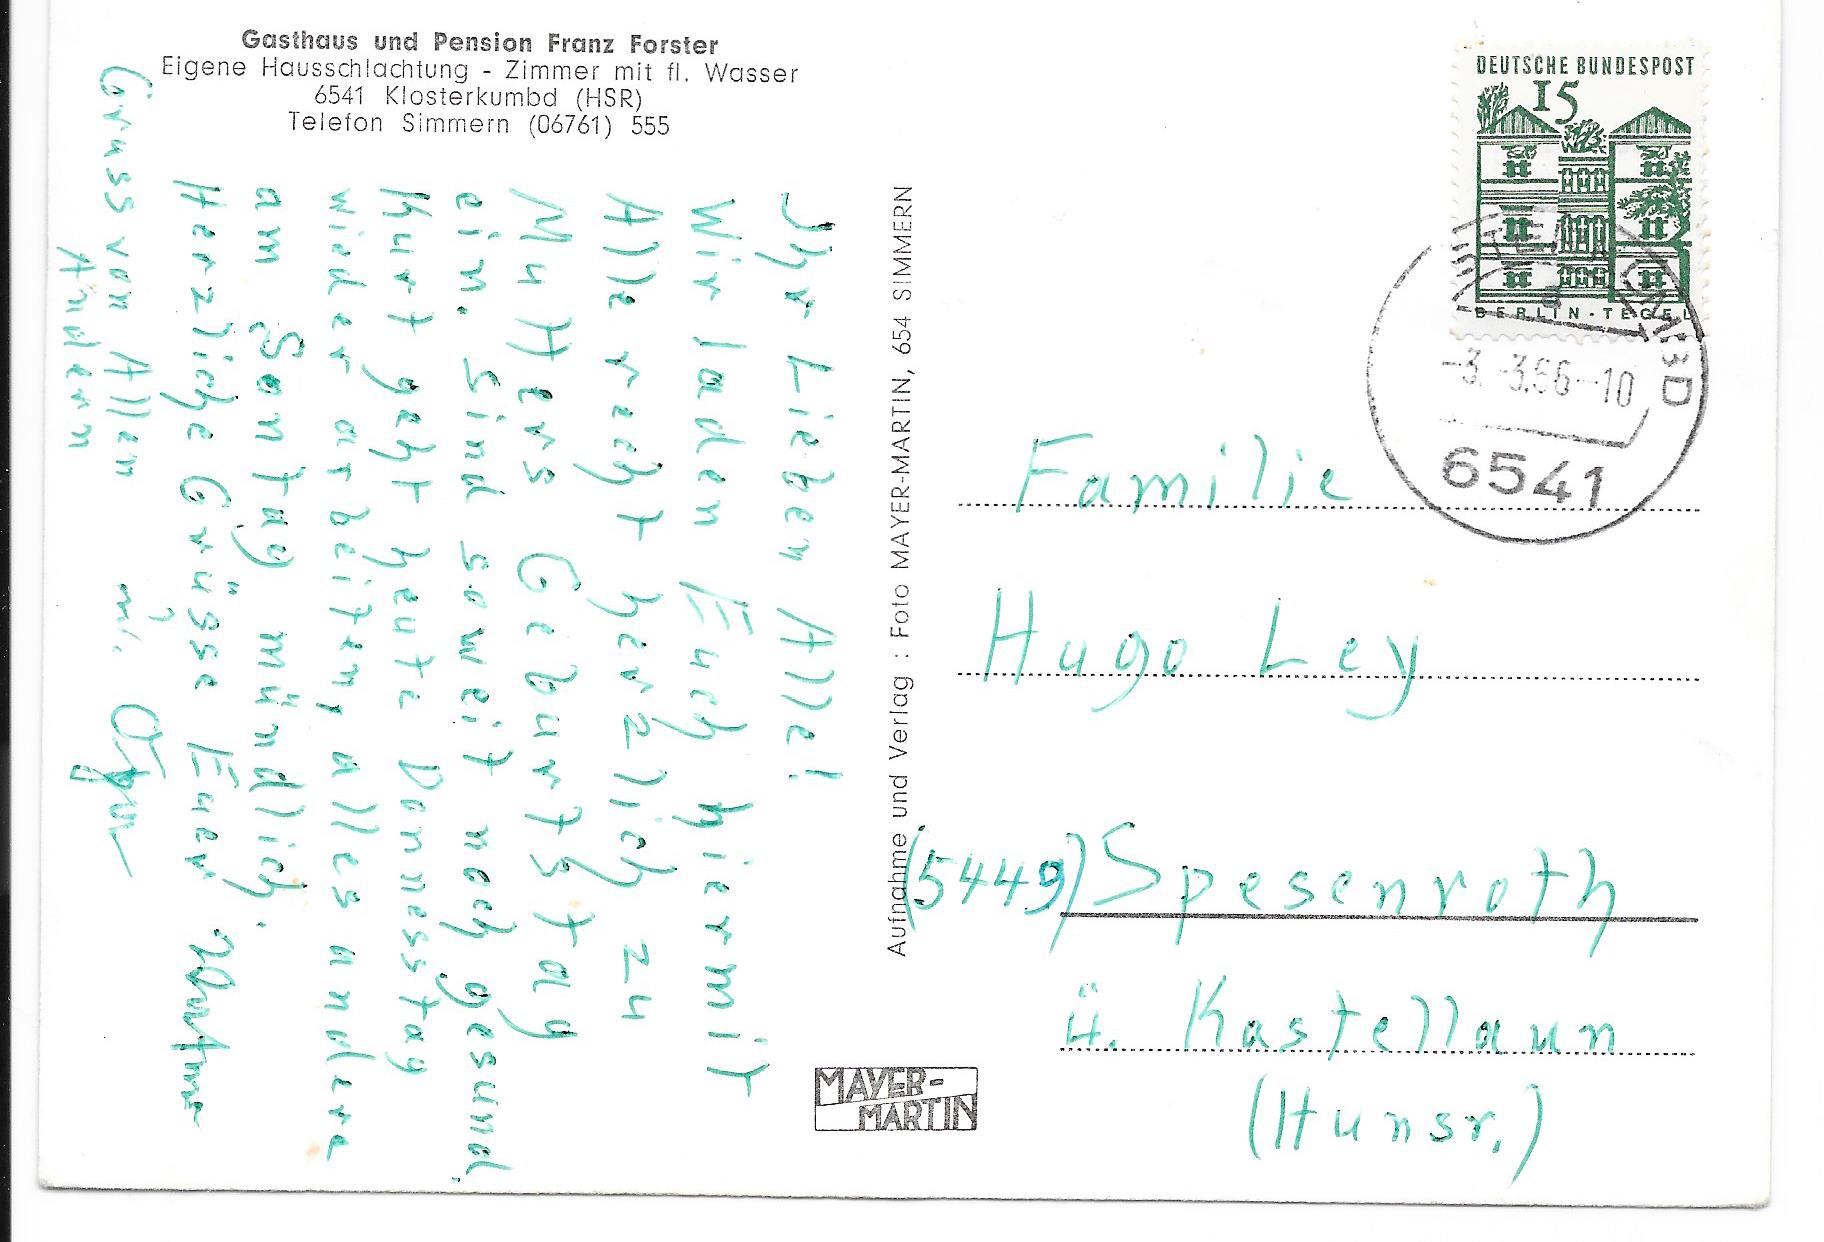 Gasthaus und Pension Franz Forster
Eigene Hausschlachtung - Zimmer mit fl. Wasser
6541 Klosterkumbd (HSR)
Telefon Simmern (06761) 555
Ihr Lieben Alle!
Wir laden Euch hiermit
Alle recht herzlich zu
Mutters Geburtstag
ein. Sind soweit noch gesund.
Kurt geht heute Donnesstag
wieder arbeiten, alles andere
am Sontag mündlich.
Herzliche Grüsse Euer
Gruss von Allen
Andern
Aufnahme und Verlag : Foto MAYER-MARTIN, 654 SIMMERN
MAYER-
MARTIN
DEUTSCHE BUNDESPOST
15
BERLIN-TEGEL
-3.-3.66-10
6541
Familie
Hugo Ley
(5449) Spesenroth
ü. Kastellaun
(Hunsr.)